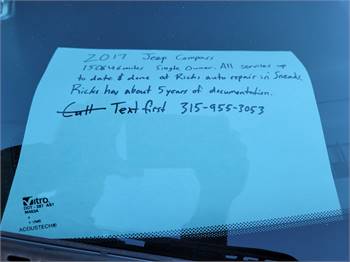 2017 Jeep Compass
150646 miles Single Owner. All services up
to date & done at Ricks auto repair in Sneads.
Ricks has about 5 years of documentation.
Call Text first 315-955-3053
Vitro
DOT-287 AS1
M463A
ACOUSTECH®